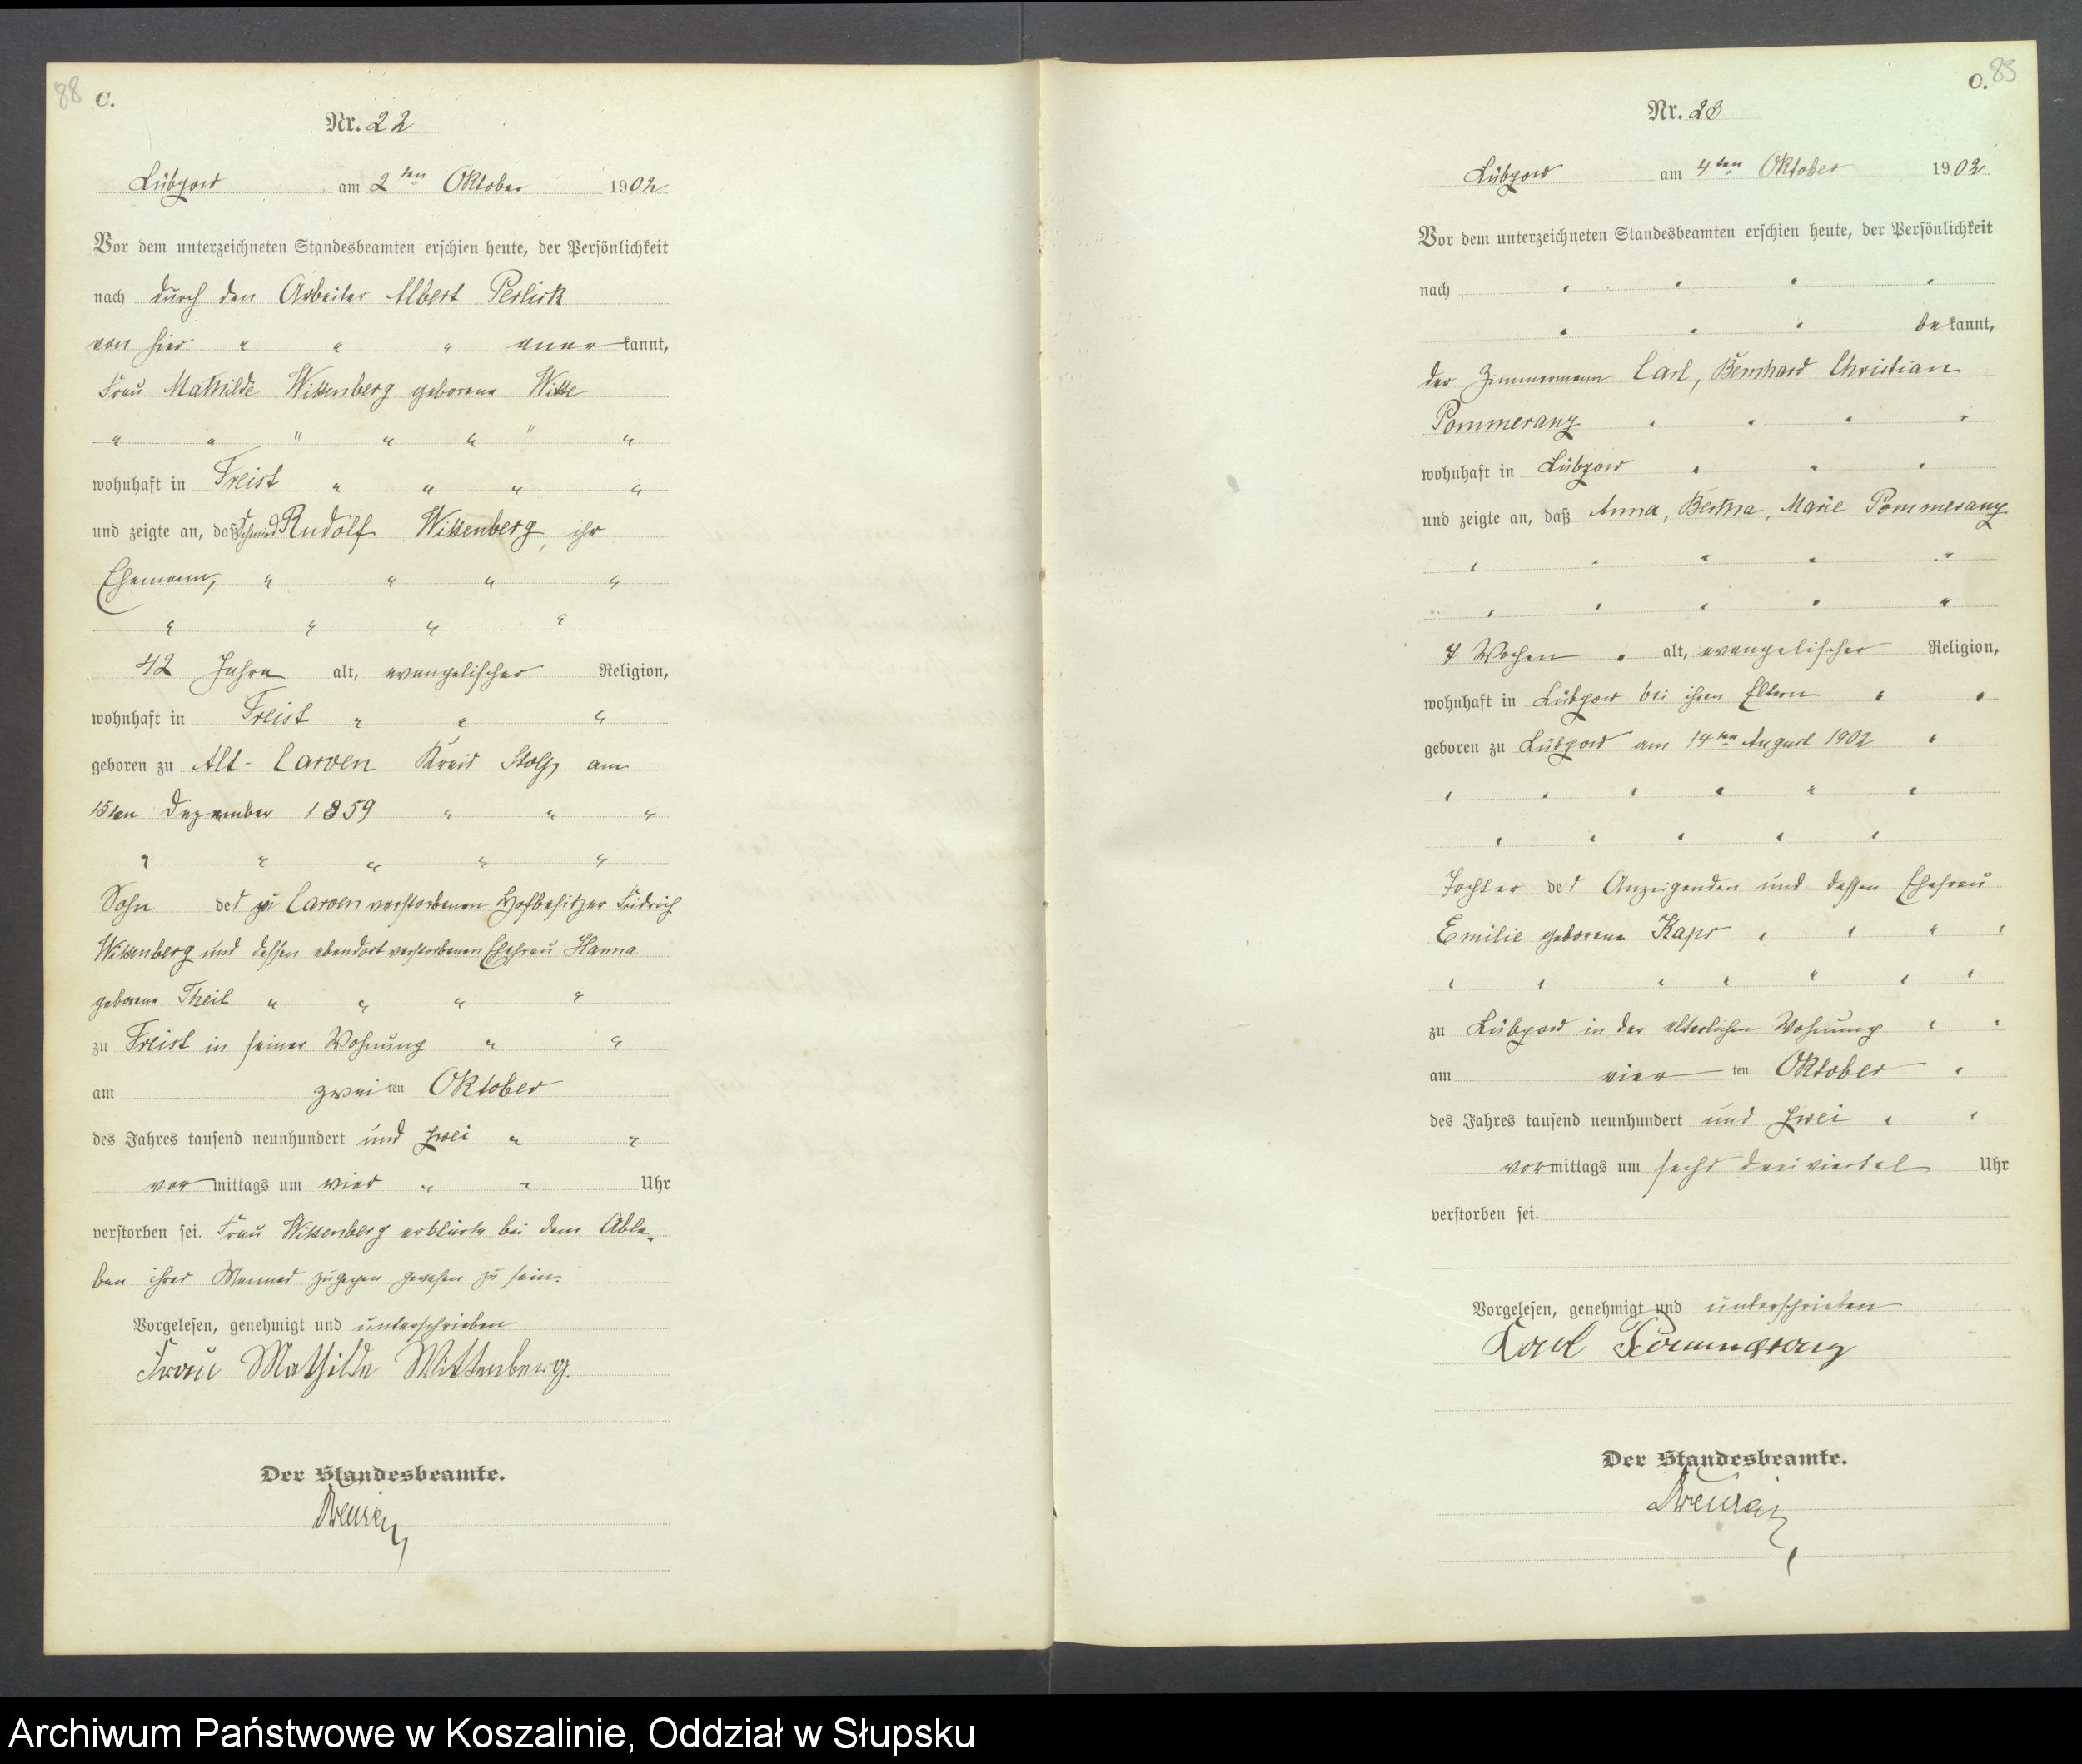 88 C.
Nr. 22
Lübzow am 2ten Oktober 1902
Vor dem unterzeichneten Standesbeamten erschien heute, der Persönlichkeit
nach durch den Arbeiter Albert Perlick
von hier " " " anerkannt,
Frau Mathilde Wittenberg geborene Witte
" " " " " " "
wohnhaft in Freist " " " "
und zeigte an, daß Schmied Rudolf Wittenberg, ihr
Ehemann, " " " "
" " " "
42 Jahre alt, evangelischer Religion,
wohnhaft in Freist " " "
geboren zu Alt-Carven Kreis Stolp am
15ten Dezember 1859 " " "
" " " " "
Sohn des zu Carven verstorbenen Hofbesitzer Fridrich
Wittenberg und dessen ebendort verstorbenen Ehefrau Hanna
geborene Theil " " " "
zu Freist in seiner Wohnung " "
am zweiten Oktober
des Jahres tausend neunhundert und zwei " "
vormittags um vier " " Uhr
verstorben sei. Frau Wittenberg erklärte bei dem Able-
ben ihres Mannes zugegen gewesen zu sein.
Vorgelesen, genehmigt und unterschrieben
Frau Mathilde Wittenberg.
Der Standesbeamte.
C. 89
Nr. 23
Lübzow am 4ten Oktober 1902
Vor dem unterzeichneten Standesbeamten erschien heute, der Persönlichkeit
nach " " " "
" " " bekannt,
der Zimmermann Carl, Bernhard Christian
Pommeranz " " " "
wohnhaft in Lübzow " " "
und zeigte an, daß Anna, Bertha, Marie Pommeranz
" " " " "
" " " " "
7 Wochen " alt, evangelischer Religion,
wohnhaft in Lübzow bei ihren Eltern " "
geboren zu Lübzow am 14ten August 1902 "
" " " " " "
" " " " "
Tochter des Anzeigenden und dessen Ehefrau
Emilie geborene Kaps " " " "
" " " " " " "
zu Lübzow in der elterlichen Wohnung " "
am vierten Oktober "
des Jahres tausend neunhundert und zwei " "
vormittags um sechs dreiviertel Uhr
verstorben sei.
Vorgelesen, genehmigt und unterschrieben
Karl Pommeranz
Der Standesbeamte.
Archiwum Państwowe w Koszalinie, Oddział w Słupsku